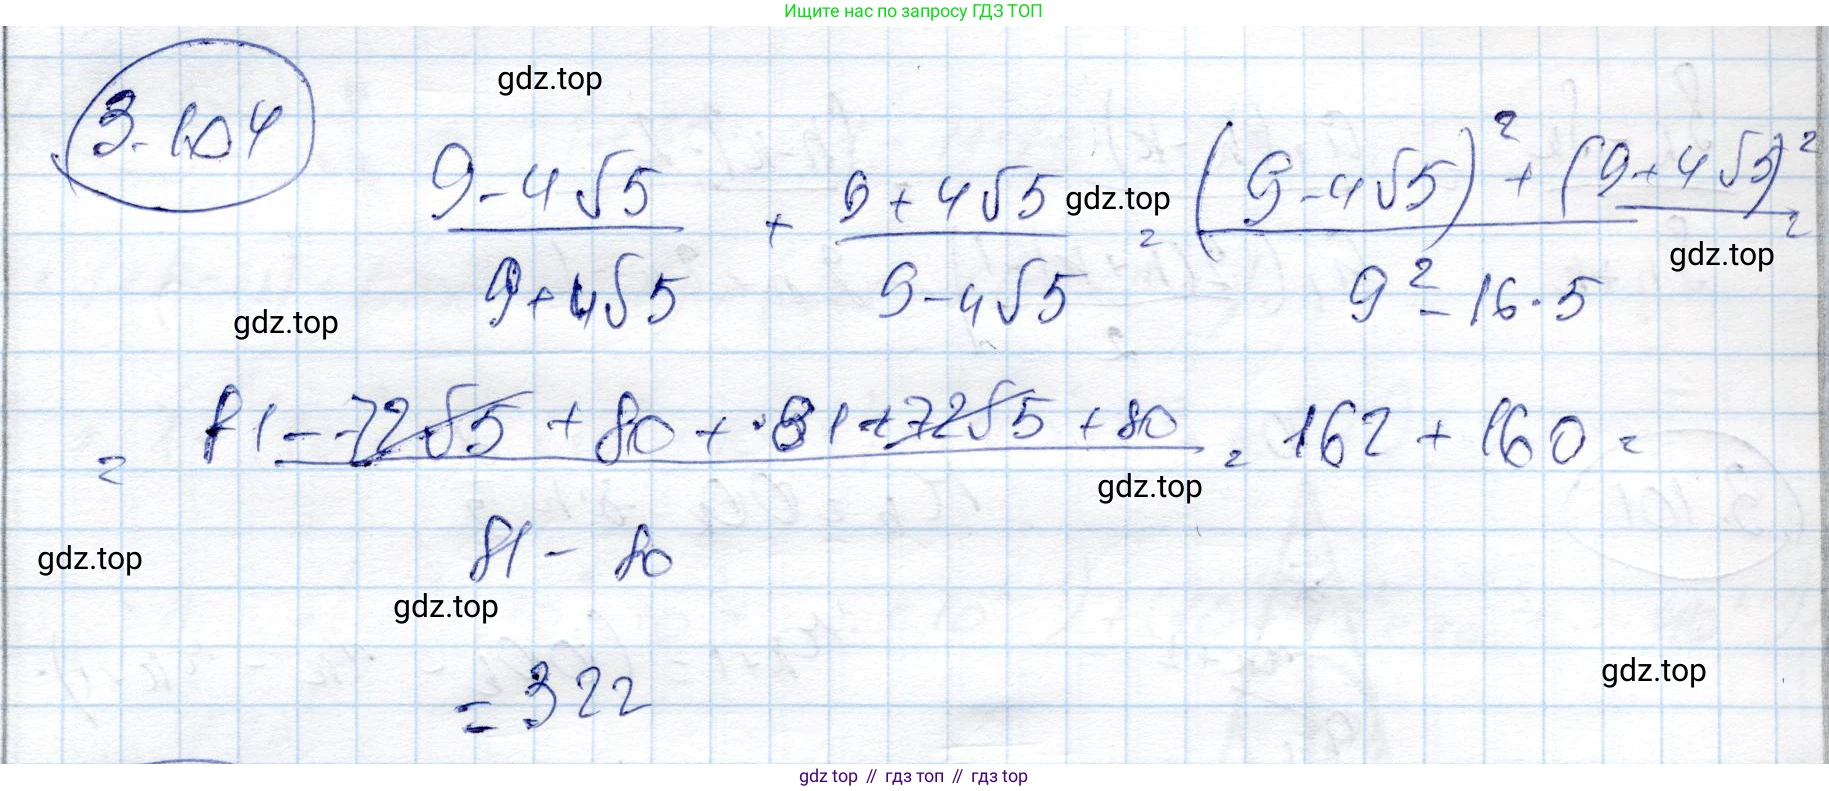 Ищите нас по запросу ГДЗ ТОП
3.104
gdz.top
(9-4√5)/(9+4√5) + (9+4√5)/(9-4√5) = ((9-4√5)² + (9+4√5)²)/(9²-16·5) =
gdz.top
gdz.top
gdz.top
= (81-72√5+80+81+72√5+80)/(81-80) = 162+160 =
gdz.top
gdz.top
gdz.top
= 322
gdz.top
gdz top // гдз топ // гдз top